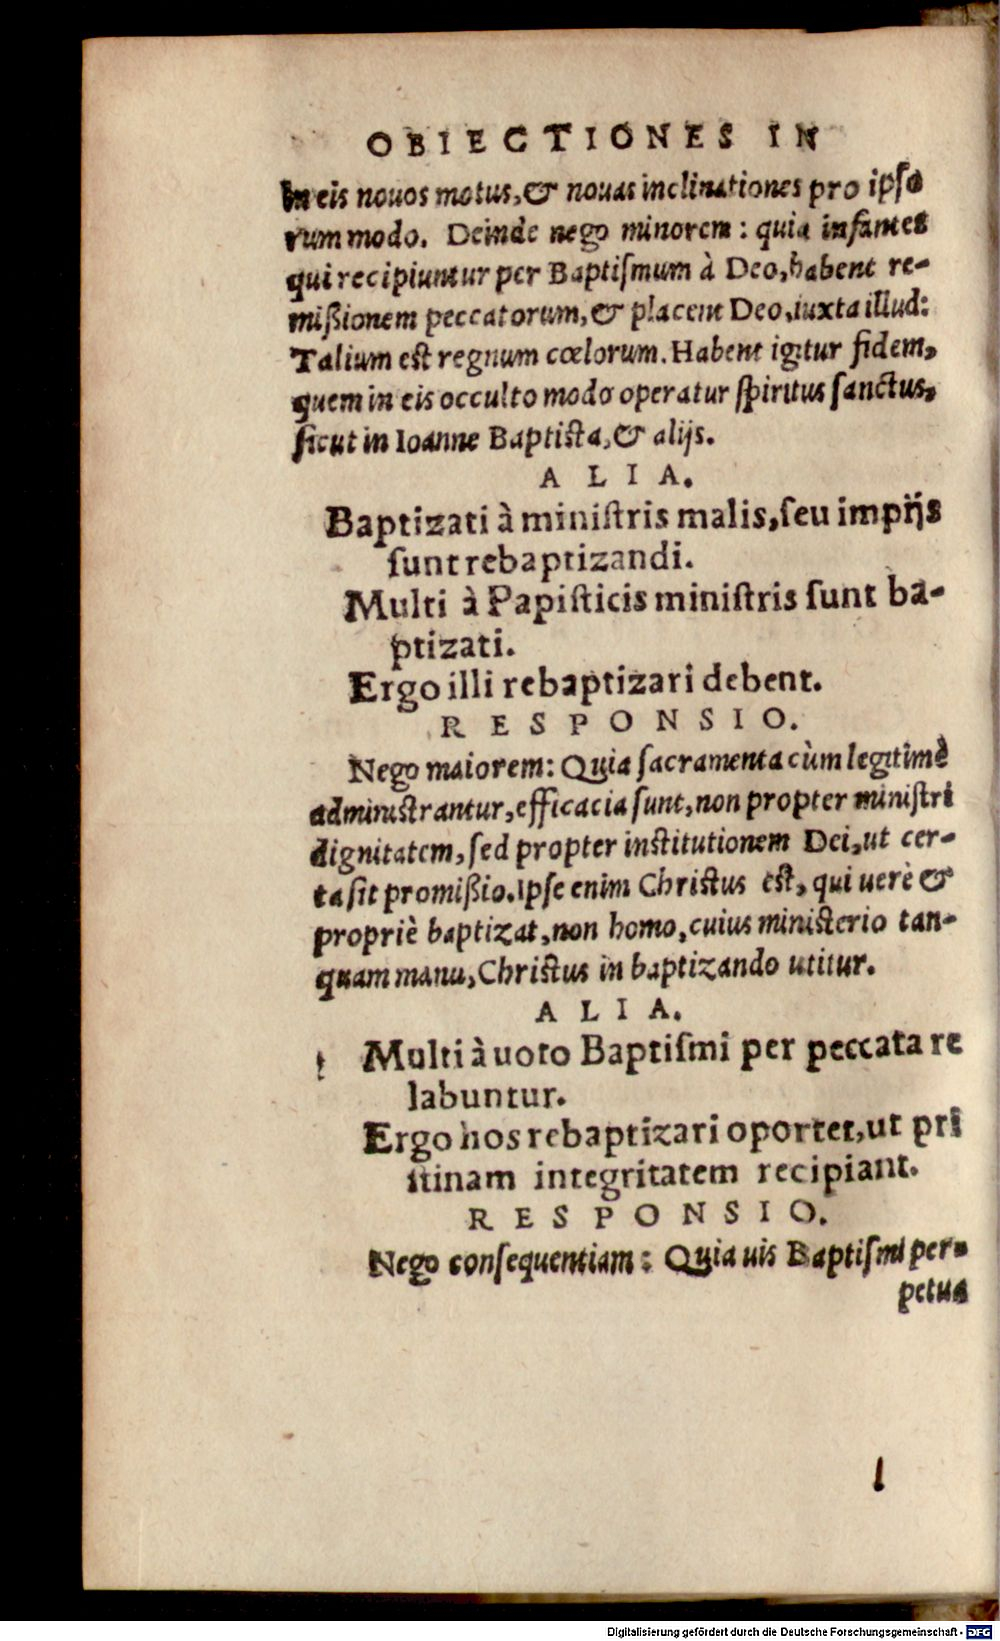 OBIECTIONES IN
in eis nouos motus, & nouas inclinationes pro ipso
rum modo. Deinde nego minorem: quia infantes
qui recipiuntur per Baptiſmum à Deo, habent re-
mißionem peccatorum, & placent Deo, iuxta illud:
Talium est regnum cœlorum. Habent igitur fidem,
quem in eis occulto modo operatur ſpiritus ſanctus,
ſicut in Ioanne Baptista, & alijs.
ALIA.
Baptizati à miniſtris malis, ſeu impijs
ſunt rebaptizandi.
Multi à Papiſticis miniſtris ſunt ba-
ptizati.
Ergo illi rebaptizari debent.
RESPONSIO.
Nego maiorem: Quia ſacramenta cùm legitimè
administrantur, efficacia ſunt, non propter miniſtri
dignitatem, ſed propter institutionem Dei, ut cer-
ta ſit promißio. Ipſe enim Christus est, qui uerè &
propriè baptizat, non homo, cuius ministerio tan-
quam manu, Christus in baptizando utitur.
ALIA.
Multi à uoto Baptiſmi per peccata re
labuntur.
Ergo hos rebaptizari oportet, ut pri
ſtinam integritatem recipiant.
RESPONSIO.
Nego conſequentiam: Quia uis Baptiſmi per-
petua
Digitalisierung gefördert durch die Deutsche Forschungsgemeinschaft - DFG